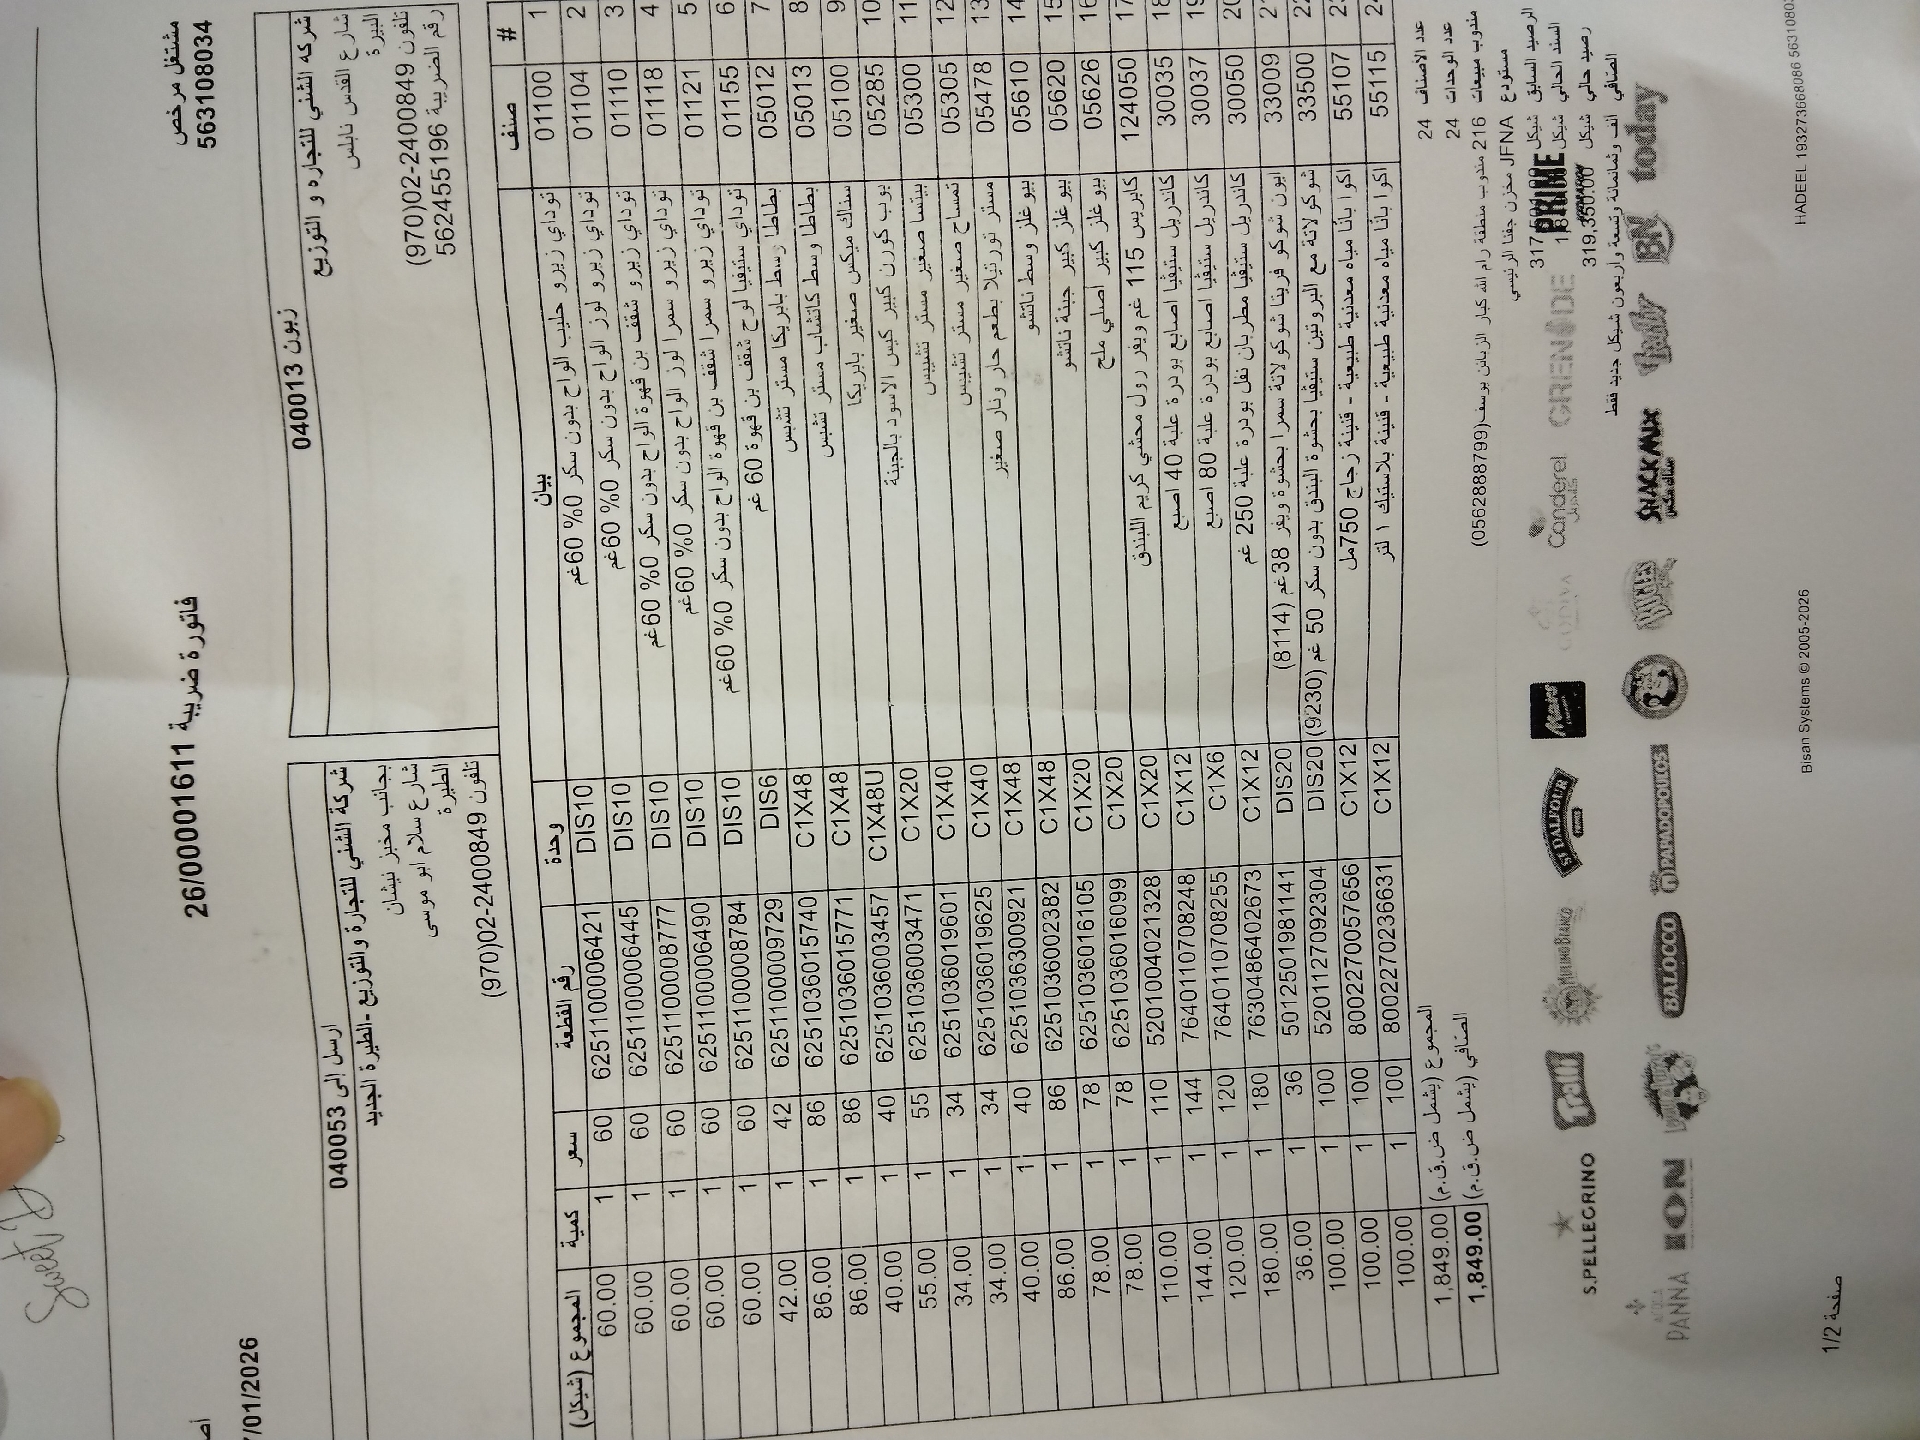 Sweet
مشتغل مرخص
563108034
فاتورة ضريبة 26/00001611
/01/2026
زبون 040013
شركة الشني للتجاره و التوزيع
شارع القدس نابلس
البيرة
تلفون 02-2400849(970)
رقم الضريبة 562455196
ارسل إلى 040053
شركة الشني للتجارة و التوزيع -الطيرة الجديد
بجانب مخبز نيشان
شارع سلام ابو موسى
الطيرة
تلفون 02-2400849(970)
# صنف بيان وحدة رقم القطعة سعر كمية المجموع (شيكل)
1 01100 توداي زيرو حليب الواح بدون سكر 0% 60غم DIS10 6251100006421 60 1 60.00
2 01104 توداي زيرو لوز الواح بدون سكر 0% 60غم DIS10 6251100006445 60 1 60.00
3 01110 توداي زيرو شقف بن قهوة الواح بدون سكر 0% 60غم DIS10 6251100008777 60 1 60.00
4 01118 توداي زيرو سمرا لوز الواح بدون سكر 0% 60غم DIS10 6251100006490 60 1 60.00
5 01121 توداي زيرو سمرا شقف بن قهوة الواح بدون سكر 0% 60غم DIS10 6251100008784 60 1 60.00
6 01155 توداي ستيفيا لوح شقف بن قهوة 60 غم DIS6 6251100009729 42 1 42.00
7 05012 بطاطا وسط بابريكا مستر تشبس C1X48 6251036015740 86 1 86.00
8 05013 بطاطا وسط كاتشاب مستر تشبس C1X48 6251036015771 86 1 86.00
9 05100 سناك ميكس صغير بابريكا C1X48U 6251036003457 40 1 40.00
10 05285 بوب كورن كبير كيس الاسود بالجبنة C1X20 6251036003471 55 1 55.00
11 05300 بيتسا صغير مستر تشيبس C1X40 6251036019601 34 1 34.00
12 05305 تمساح صغير مستر تشيبس C1X40 6251036019625 34 1 34.00
13 05478 مستر تورتيلا بطعم حار ونار صغير C1X48 6251036300921 40 1 40.00
14 05610 بيوغلز وسط ناتشو C1X48 6251036002382 86 1 86.00
15 05620 بيوغلز كبير جبنة ناتشو C1X20 6251036016105 78 1 78.00
16 05626 بيوغلز كبير اصلي ملح C1X20 6251036016099 78 1 78.00
17 124050 كابريس 115 غم ويفر رول محشي كريم البندق C1X20 5201004021328 110 1 110.00
18 30035 كاندريل ستيفيا اصابع بودرة علبة 40 اصبع C1X12 7640110708248 144 1 144.00
19 30037 كاندريل ستيفيا اصابع بودرة علبة 80 اصبع C1X6 7640110708255 120 1 120.00
20 30050 كاندريل ستيفيا مطربان نفل بودرة علبة 250 غم C1X12 7630486402673 180 1 180.00
21 33009 ايون شوكو فريتا شوكولاتة سمرا بحشوة ويفر 38غم (8114) DIS20 5012501981141 36 1 36.00
22 33500 شوكولاتة مع البروتين ستيفيا بحشوة البندق بدون سكر 50 غم (9230) DIS20 5201127092304 100 1 100.00
23 55107 اكوا بانا مياه معدنية طبيعية - قنينة زجاج 750مل C1X12 8002270057656 100 1 100.00
24 55115 اكوا بانا مياه معدنية طبيعية - قنينة بلاستيك 1 لتر C1X12 8002270236631 100 1 100.00
المجموع (يشمل ض.ق.م) 1,849.00
الصافي (يشمل ض.ق.م) 1,849.00
عدد الأصناف 24
عدد الوحدات 24
مندوب مبيعات 216 مندوب منطقة رام الله كبار الزبائن يوسف(0562888799)
مستودع JFNA مخزن جفنا الرئيسي
الرصيد السابق شيكل
السند الحالي شيكل
رصيد حالي شيكل 319,350.00
الصافي ألف وثمانمائة وتسعة واربعون شيكل جديد فقط
S.PELLEGRINO Trolli MULINO BIANCO ST DALFOUR Mars GODIVA Canderel كاندريل GRENADE PRIME
ACQUA PANNA ION Looney Tunes BALOCCO PAPADOPOULOS BUGLES SNACK MIX سناك مكس Today BN today
HADEEL
Bisan Systems © 2005-2026
صفحة 1/2